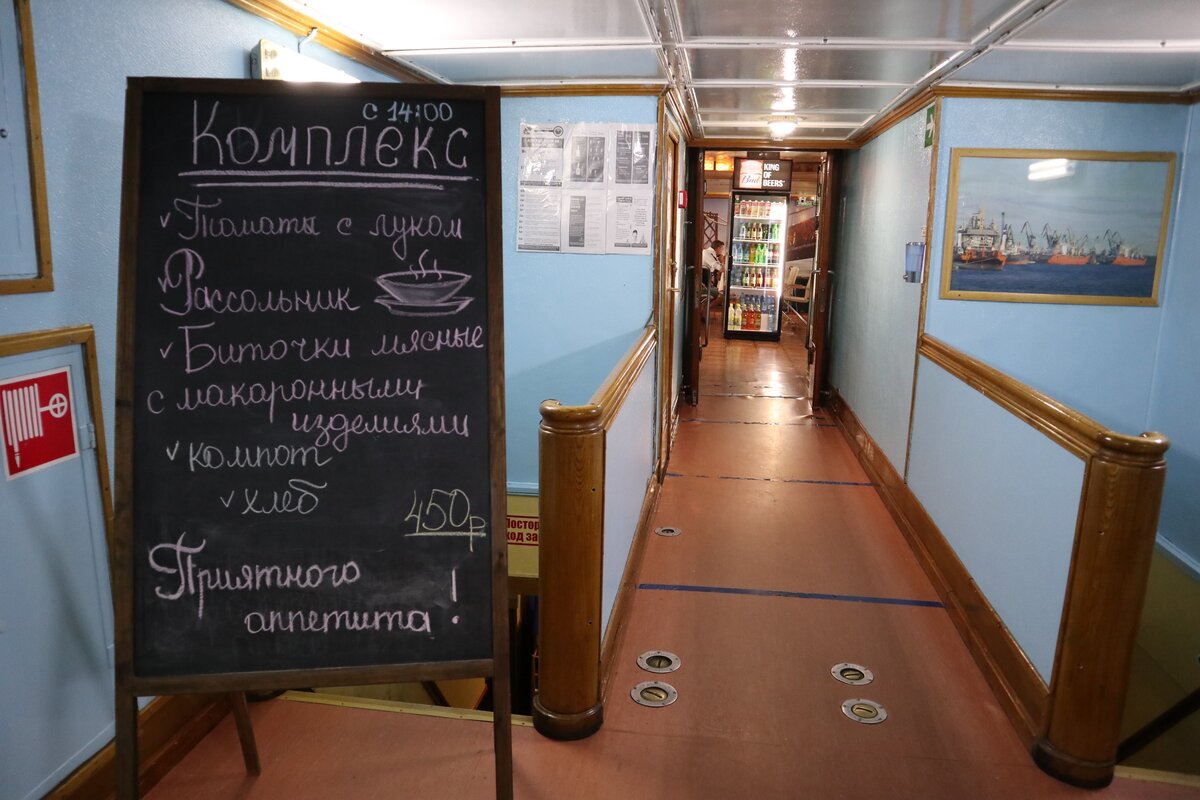 с 14:00
Комплекс
Томаты с луком
Рассольник
Биточки мясные
с макаронными
изделиями
компот
хлеб
450р
Приятного
аппетита!
Bud
KING
OF
BEERS
Постор
ход за